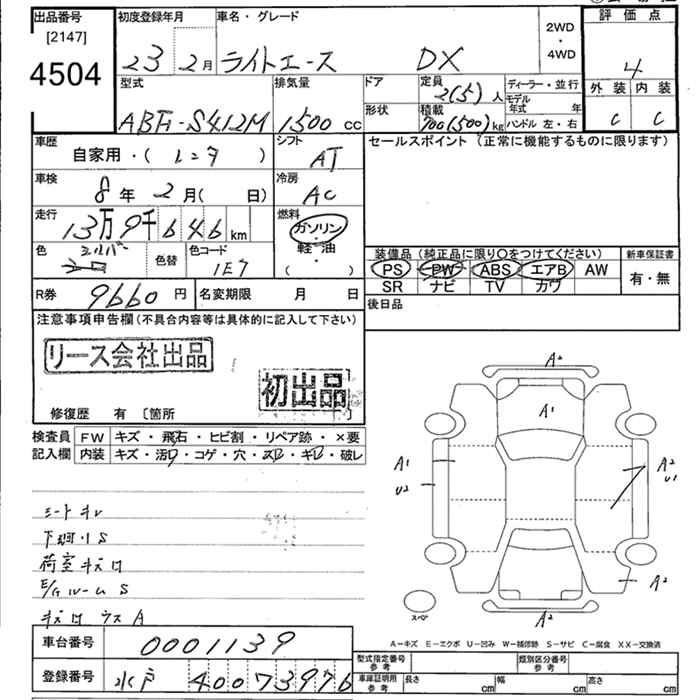 出品番号
[2147]
4504
初度登録年月
23 2月
車名・グレード
ライトエース DX
2WD
・
4WD
評価点
4
外装 内装
C C
型式
ABF-S412M
排気量
1500 cc
ドア
形状
定員
2(5)人
積載
kg
ディーラー・並行
モデル年式 年
ハンドル 左・右
車歴
自家用・( レンタ )
シフト
AT
セールスポイント (正常に機能するものに限ります)
車検
8年 2月( 日)
冷房
AC
走行
13万9千646km
燃料
ガソリン・
軽・油
( ・ )
色
シルバー
色替
色コード
1E7
装備品 (純正品に限り○をつけてください)
PS PW ABS エアB AW
SR ナビ TV カワ
新車保証書
有・無
R券
9660円
名変期限 月 日
後日品
注意事項申告欄(不具合内容等は具体的に記入して下さい)
リース会社出品
初出品
修復歴 有 〔箇所 〕
検査員
記入欄
FW キズ・飛石・ヒビ割・リペア跡・×要
内装 キズ・汚レ・コゲ・穴・スレ・キレ・破レ
シートキレ
下廻りS
荷室キズ
E/GルームS
ウスA
A²
A¹
A¹
U²
A²
U¹
A²
A²
スペア
A-キズ E-エクボ U-凹み W-補修跡 S-サビ C-腐食 XX-交換済
車台番号
0001139
登録番号
水戸 400 7 3976
型式指定番号
参考
類別区分番号
参考
車庫証明用
参考
長さ cm
幅 cm
高さ cm